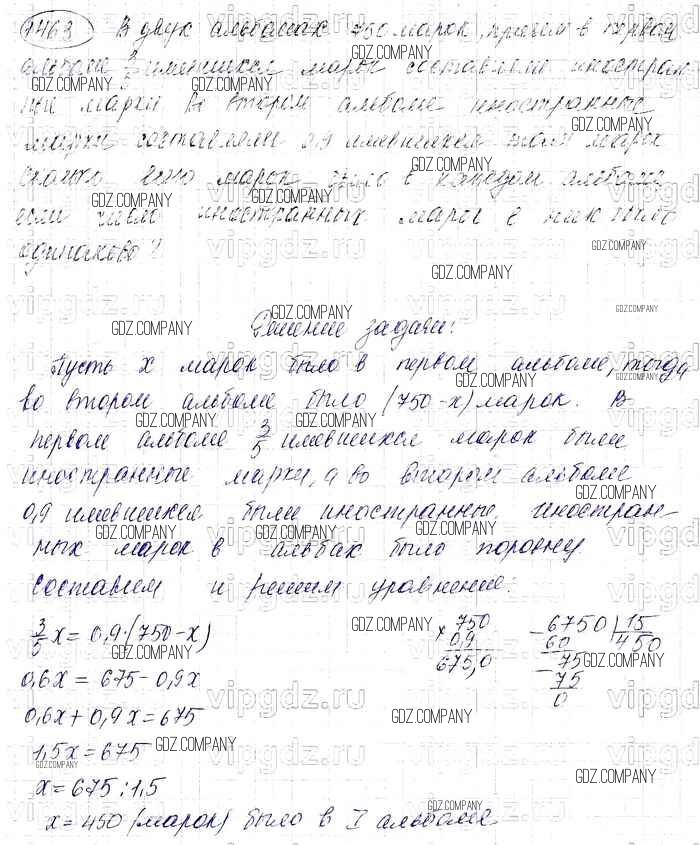 1463. В двух альбомах 750 марок, причем в первом
альбоме 3/5 имевшихся марок составляли иностран-
ные марки. Во втором альбоме иностранные
марки составляли 0,9 имевшихся там марок.
Сколько было марок было в каждом альбоме,
если число иностранных марок в них было
одинаково?
Решение задачи:
Пусть x марок было в первом альбоме, тогда
во втором альбоме было (750-x) марок. В
первом альбоме 3/5 имевшихся марок были
иностранные марки, а во втором альбоме
0,9 имевшихся были иностранные, иностран-
ных марок в альбах было поровну
Составим и решим уравнение:
3/5 x = 0,9·(750-x)
0,6x = 675-0,9x
0,6x+0,9x=675
1,5x=675
x=675:1,5
x=450 (марок) было в I альбоме
× 750
0,9
675,0
- 6750 | 15
60 450
- 75
75
0
GDZ.COMPANY
vipgdz.ru